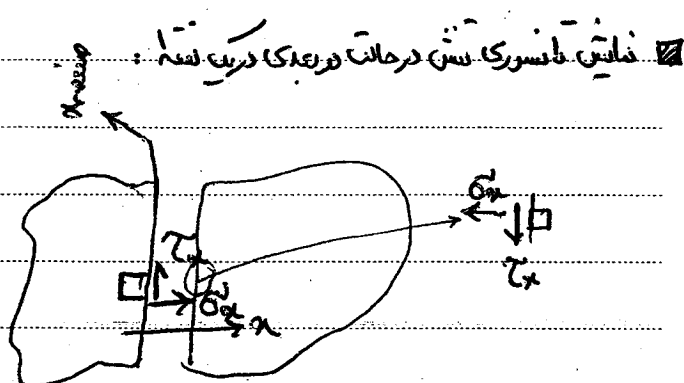 نمایش تانسوری تنش در حالت دو بعدی در یک نقطه :
صفحه x
σx
τx
τx
σx
x